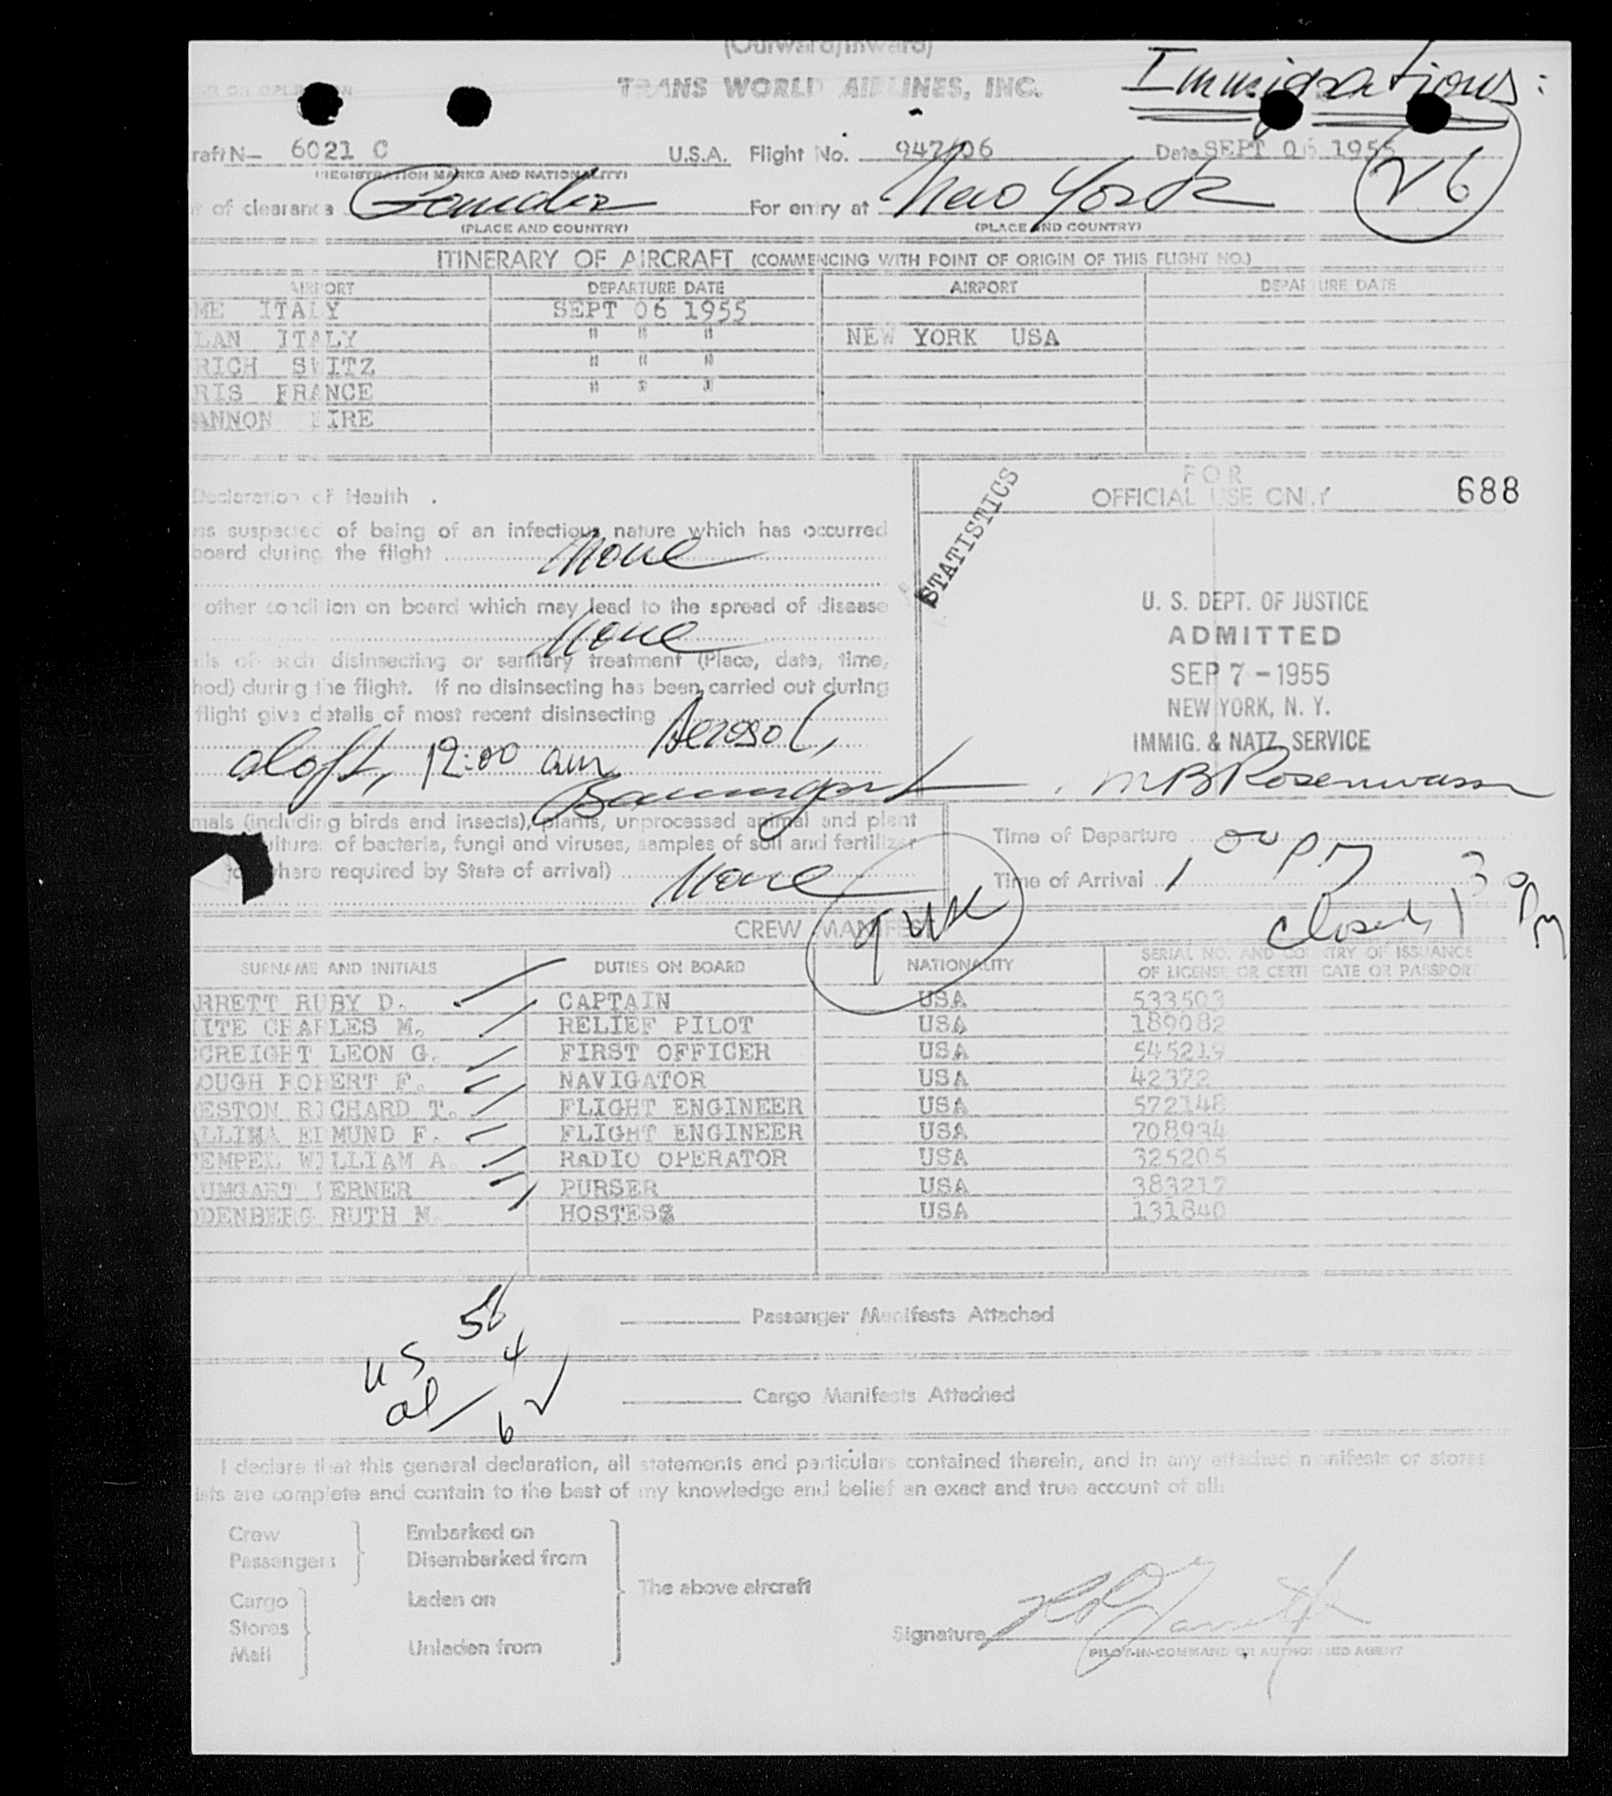 (Outward/Inward)
TRANS WORLD AIRLINES, INC.
Immigrations:
raft N— 6021 C U.S.A. Flight No. 947/06 Date SEPT 06 1955
(REGISTRATION MARKS AND NATIONALITY)
26
of clearance Gander For entry at New York
(PLACE AND COUNTRY) (PLACE AND COUNTRY)
ITINERARY OF AIRCRAFT (COMMENCING WITH POINT OF ORIGIN OF THIS FLIGHT NO.)
AIRPORT DEPARTURE DATE AIRPORT DEPARTURE DATE
ME ITALY SEPT 06 1955
LAN ITALY " " " NEW YORK USA
RICH SWITZ " " "
RIS FRANCE " " "
ANNON EIRE
Declaration of Health.
FOR
OFFICIAL USE ONLY 688
STATISTICS
ns suspected of being of an infectious nature which has occurred
board during the flight None
other condition on board which may lead to the spread of disease
None
ils of each disinsecting or sanitary treatment (Place, date, time,
hod) during the flight. If no disinsecting has been carried out during
flight give details of most recent disinsecting Aerosol,
aloft, 12:00 am
Baumgart
U. S. DEPT. OF JUSTICE
ADMITTED
SEP 7 - 1955
NEW YORK, N. Y.
IMMIG. & NATZ. SERVICE
MB Rosenwasser
mals (including birds and insects), plants, unprocessed animal and plant
ultures of bacteria, fungi and viruses, samples of soil and fertilizer
where required by State of arrival) None
Time of Departure
Time of Arrival 1 00 PM
closed 130 PM
CREW MANIFEST
9 USC
SURNAME AND INITIALS DUTIES ON BOARD NATIONALITY SERIAL NO. AND COUNTRY OF ISSUANCE
OF LICENSE OR CERTIFICATE OR PASSPORT
ARRETT RUBY D. CAPTAIN USA 533503
ITE CHARLES M. RELIEF PILOT USA 189082
CREIGHT LEON G. FIRST OFFICER USA 545219
OUGH ROBERT F. NAVIGATOR USA 42372
ESTON RICHARD T. FLIGHT ENGINEER USA 572148
ALLIMA EDMUND F. FLIGHT ENGINEER USA 708934
EMPEL WILLIAM A. RADIO OPERATOR USA 325205
UMGART WERNER PURSER USA 383217
DENBERG RUTH M. HOSTESS USA 131840
Passenger Manifests Attached
US 56
al 4
6
Cargo Manifests Attached
I declare that this general declaration, all statements and particulars contained therein, and in any attached manifests or stores
ists are complete and contain to the best of my knowledge and belief an exact and true account of all:
Crew
Passengers
Embarked on
Disembarked from
Cargo
Stores
Mail
Laden on
Unladen from
The above aircraft
Signature
PILOT-IN-COMMAND OR AUTHORIZED AGENT